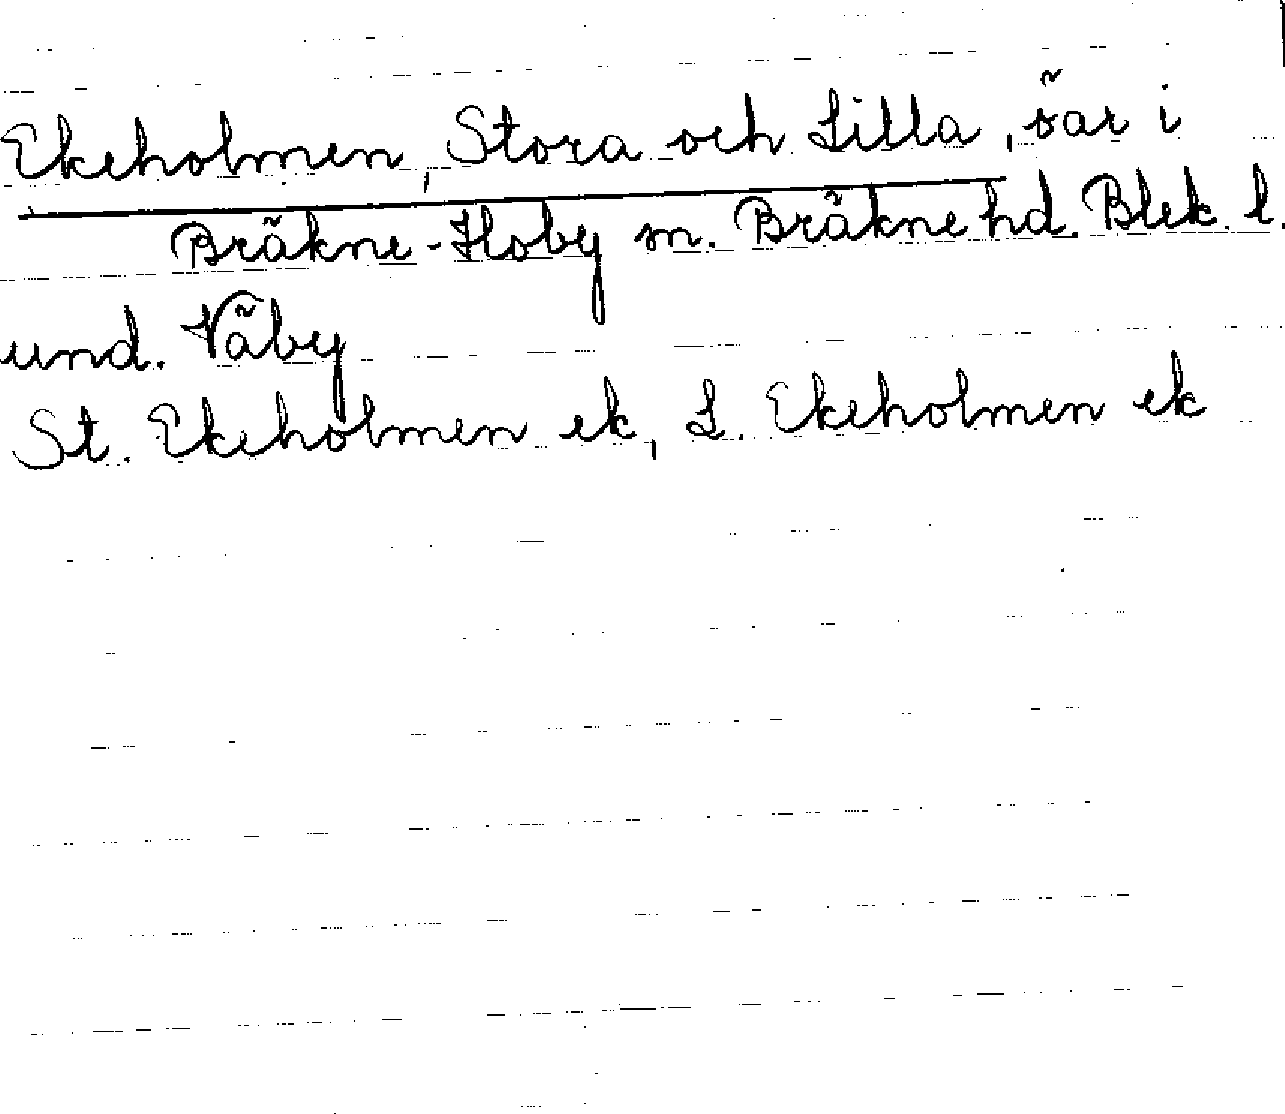 Ekeholmen, Stora och Lilla, öar i
Bräkne-Hoby sn. Bräkne hd. Blek. l.
und. Väby
St. Ekeholmen ek, L. Ekeholmen ek